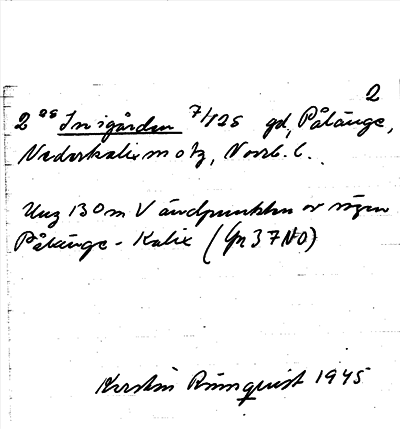 2
2 as Innigården 7/125 gd, Pålänge,
Nederkalix m o tg, Norrb. l.
Ung 130 m V ändpunkten av vägen
Pålänge - Kalix (Gn 37 NO)
Kerstin Rönnquist 1945